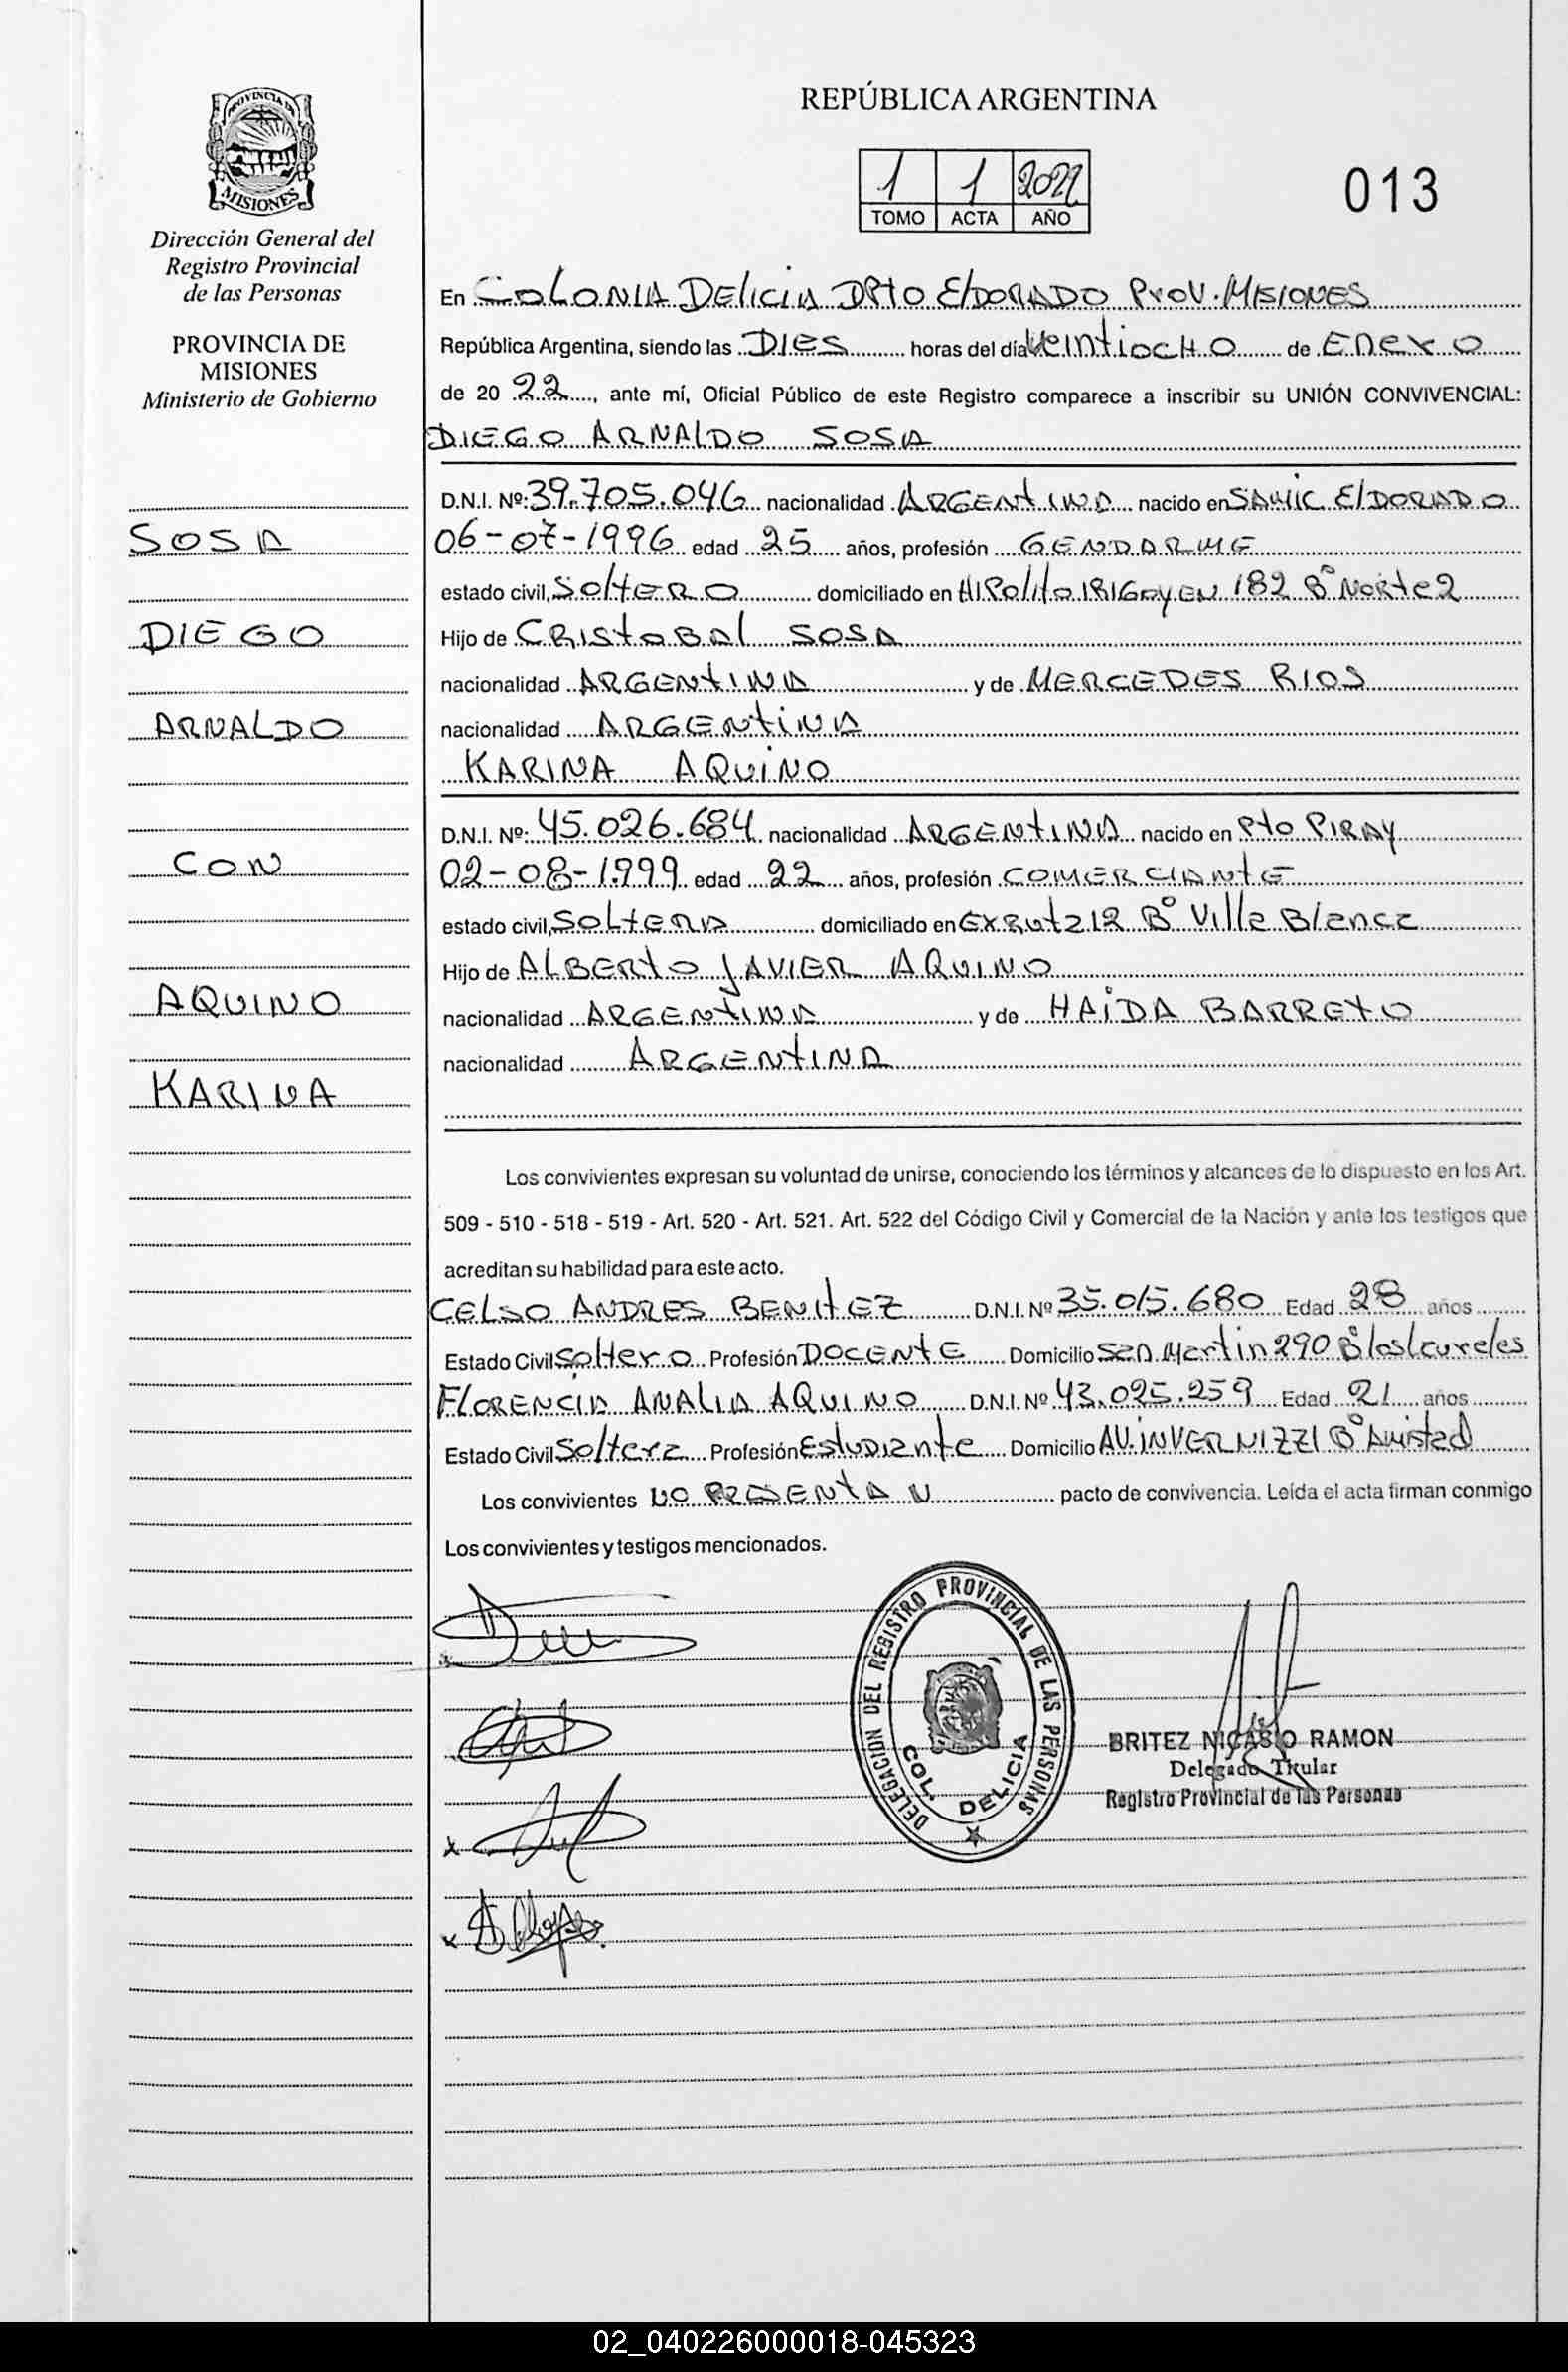 PROVINCIA DE
MISIONES
Dirección General del
Registro Provincial
de las Personas
PROVINCIA DE
MISIONES
Ministerio de Gobierno
SOSA
DIEGO
ARNALDO
CON
AQUINO
KARINA
REPÚBLICA ARGENTINA
1 1 2022
TOMO ACTA AÑO
013
En COLONIA DELICIA DPTO ELDORADO PROV. MISIONES
República Argentina, siendo las DIES horas del día VEINTIOCHO de ENERO
de 20 22, ante mí, Oficial Público de este Registro comparece a inscribir su UNIÓN CONVIVENCIAL:
DIEGO ARNALDO SOSA
D.N.I. Nº: 39.705.046 nacionalidad ARGENTINA nacido en SAMIC ELDORADO
06-07-1996 edad 25 años, profesión GENDARME
estado civil, SOLTERO domiciliado en HIPOLITO IRIGOYEN 182 Bº NORTE 2
Hijo de CRISTOBAL SOSA
nacionalidad ARGENTINA y de MERCEDES RIOS
nacionalidad ARGENTINA
KARINA AQUINO
D.N.I. Nº: 45.026.684 nacionalidad ARGENTINA nacido en PTO PIRAY
02-08-1999 edad 22 años, profesión COMERCIANTE
estado civil, SOLTERA domiciliado en EX RUTA 12 Bº Villa Blanca
Hijo de ALBERTO JAVIER AQUINO
nacionalidad ARGENTINA y de HAIDA BARRETO
nacionalidad ARGENTINA
Los convivientes expresan su voluntad de unirse, conociendo los términos y alcances de lo dispuesto en los Art.
509 - 510 - 518 - 519 - Art. 520 - Art. 521. Art. 522 del Código Civil y Comercial de la Nación y ante los testigos que
acreditan su habilidad para este acto.
CELSO ANDRES BENITEZ D.N.I. Nº 35.015.680 Edad 28 años
Estado Civil Soltero Profesión DOCENTE Domicilio San Martin 290 Bº los laureles
FLORENCIA ANALIA AQUINO D.N.I. Nº 43.025.259 Edad 21 años
Estado Civil Soltera Profesión Estudiante Domicilio AV. INVERNIZZI Bº Amistad
Los convivientes NO PRESENTAN pacto de convivencia. Leída el acta firman conmigo
Los convivientes y testigos mencionados.
DELEGACION DEL REGISTRO PROVINCIAL DE LAS PERSONAS
COL. DELICIA
BRITEZ NICASIO RAMON
Delegado Titular
Registro Provincial de las Personas
02_040226000018-045323